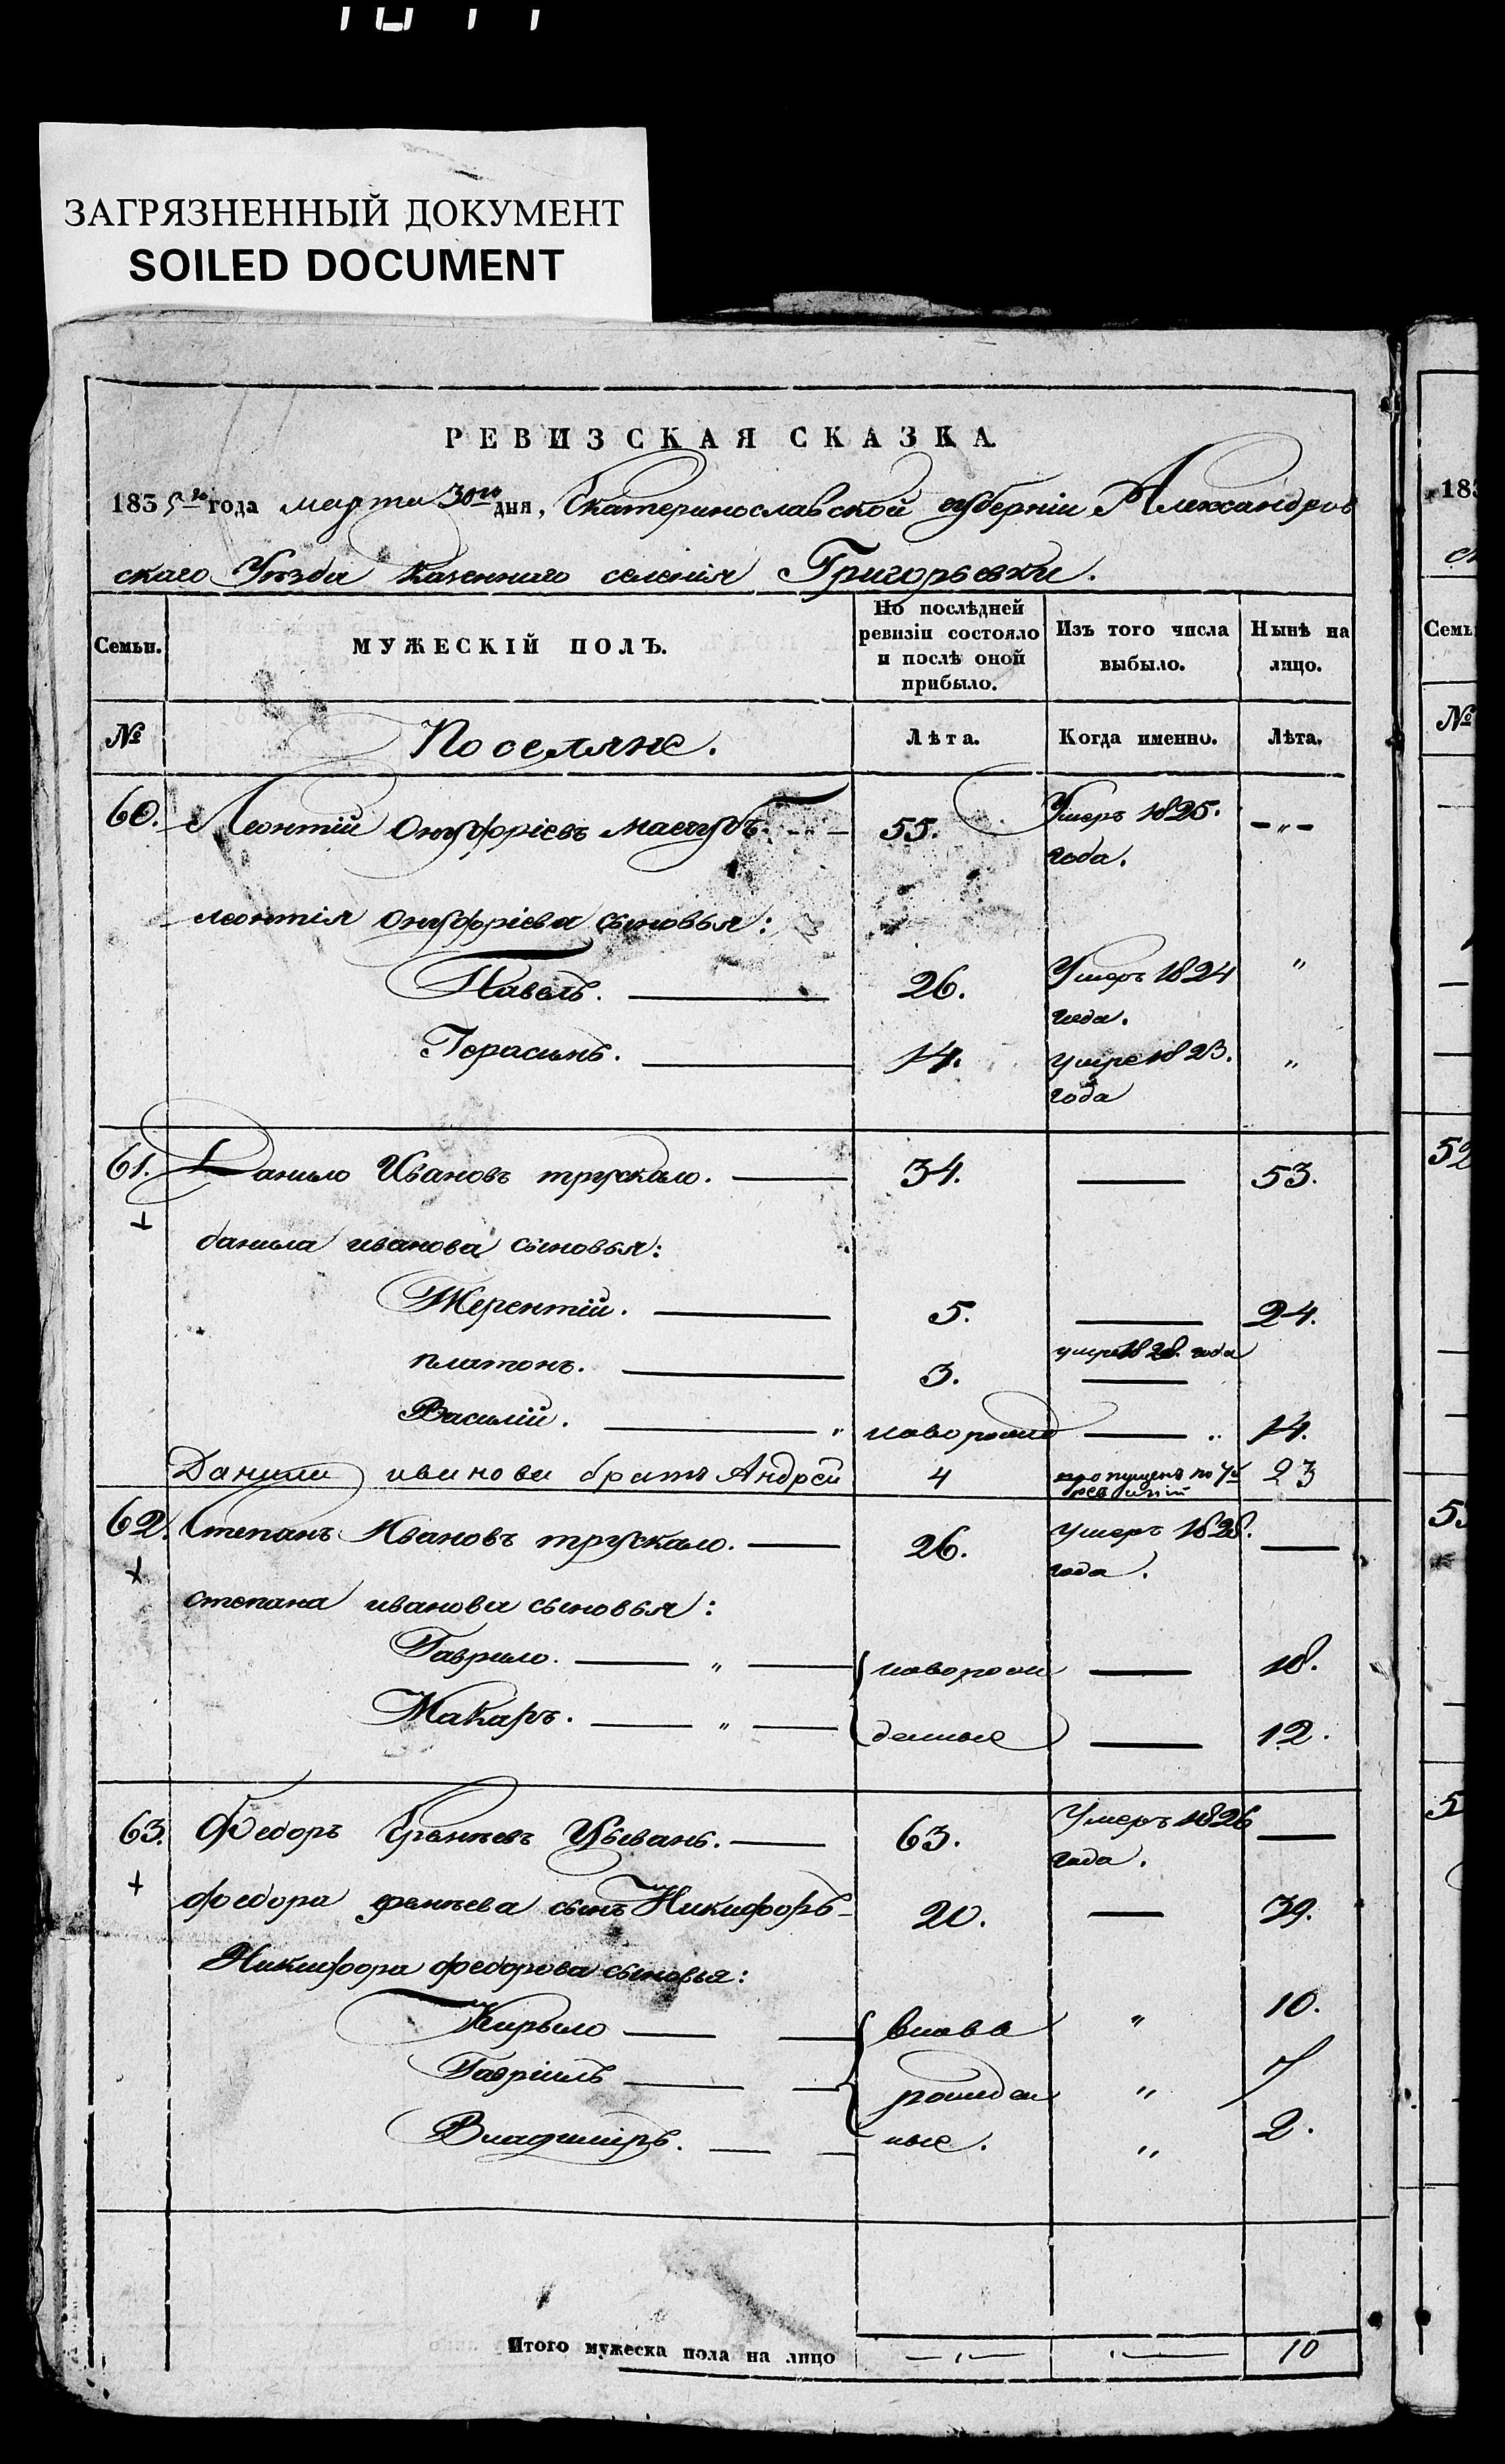 ЗАГРЯЗНЕННЫЙ ДОКУМЕНТ
SOILED DOCUMENT
РЕВИЗСКАЯ СКАЗКА
1835го года марта 30го дня, Екатеринославской губерніи Александров
скаго Уѣзда казеннаго селенія Григорьевки.
Семьи. МУЖЕСКІЙ ПОЛЪ. По послѣдней ревизіи состояло и послѣ оной прибыло. Изъ того числа выбыло. Нынѣ на лицо.
№ Поселяне. Лѣта. Когда именно. Лѣта.
60. Леонтій Онуфріевъ 55. Умеръ 1825. года. - „ -
леонтія онуфріева сыновья:
Павелъ. 26. Умеръ 1824 года. „
Герасимъ. 14. умре 1823. года „
61. Данило Ивановъ трускало. 34. 53.
данила иванова сыновья:
Терентій. 5. 24.
платонъ. 3. умре 1828. года
Василій. „ новорожд „ 14.
Данила иванова братъ Андрей 4 пропущенъ по 7й ревизіи 23
62. Степанъ Ивановъ трускало. 26. умеръ 1828. года.
степана иванова сыновья:
Гаврило. „ новорож 18.
Макаръ. „ денные 12.
63. Федоръ 63. Умеръ 1826 года.
федора сынъ Никифоръ 20. 39.
Никифора федорова сыновья:
Кирыло вновь „ 10.
Гавріилъ рожден „ 7
Владиміръ. ные. „ 2.
Итого мужеска пола на лицо 10
183
№
Семь
52
53
5